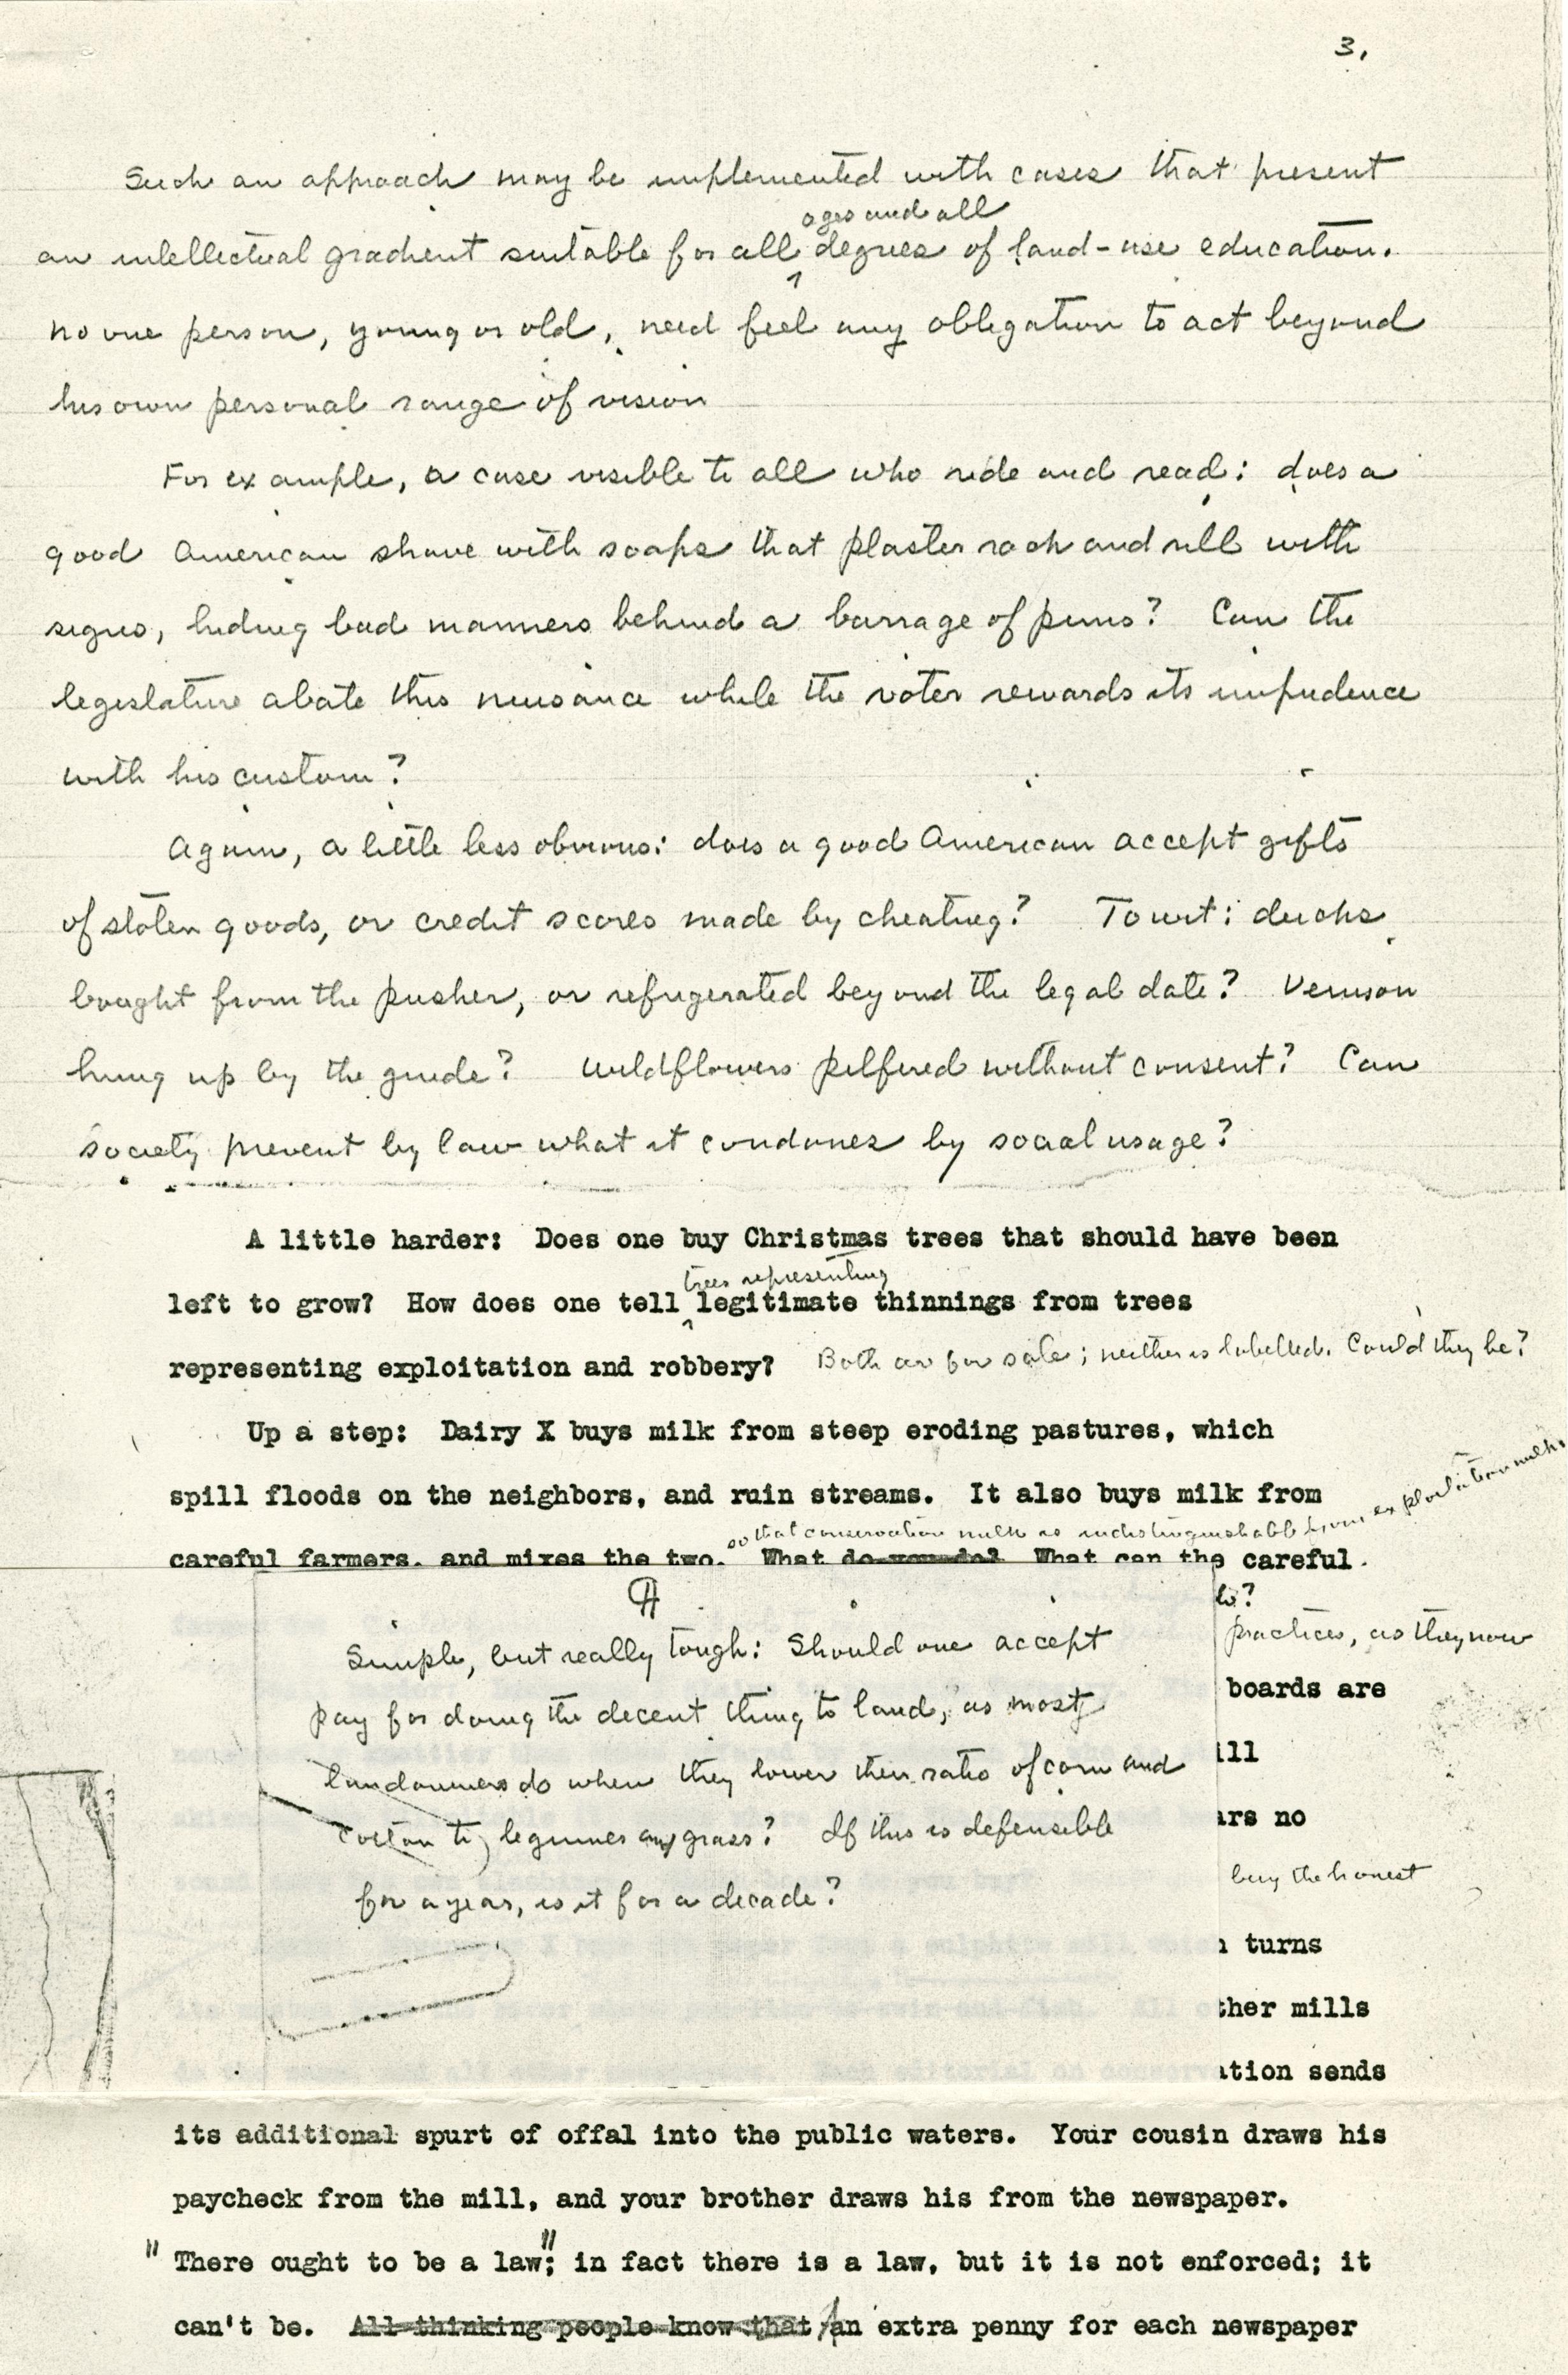 3.
Such an approach may be implemented with cases that present
ages and all
an intellectual gradient suitable for all degrees of land-use education.
No one person, young or old, need feel any obligation to act beyond
his own personal range of vision
For example, a case visible to all who ride and read: does a
good American shave with soaps that plaster rock and rill with
signs, hiding bad manners behind a barrage of puns? Can the
legislature abate this nuisance while the voter rewards its impudence
with his custom?
Again, a little less obvious: does a good American accept gifts
of stolen goods, or credit scores made by cheating? To wit: ducks
bought from the pusher, or refrigerated beyond the legal date? Venison
hung up by the guide? Wildflowers pilfered without consent? Can
society prevent by law what it condones by social usage?
A little harder: Does one buy Christmas trees that should have been
trees representing
left to grow? How does one tell legitimate thinnings from trees
representing exploitation and robbery? Both are for sale; neither is labelled. Could they be?
Up a step: Dairy X buys milk from steep eroding pastures, which
spill floods on the neighbors, and ruin streams. It also buys milk from
so that conservation milk is indistinguishable from exploitation milk.
careful farmers, and mixes the two. What do you do? What can the careful
¶
Simple, but really tough: Should one accept
practices, as they now
pay for doing the decent thing to land, as most
boards are
landowners do when they lower their ratio of corn and
ill
cotton to legumes and grass? If this is defensible
ars no
for a year, is it for a decade?
buy the honest
turns
ther mills
ation sends
its additional spurt of offal into the public waters. Your cousin draws his
paycheck from the mill, and your brother draws his from the newspaper.
"There ought to be a law"; in fact there is a law, but it is not enforced; it
can't be. All thinking people know that An extra penny for each newspaper